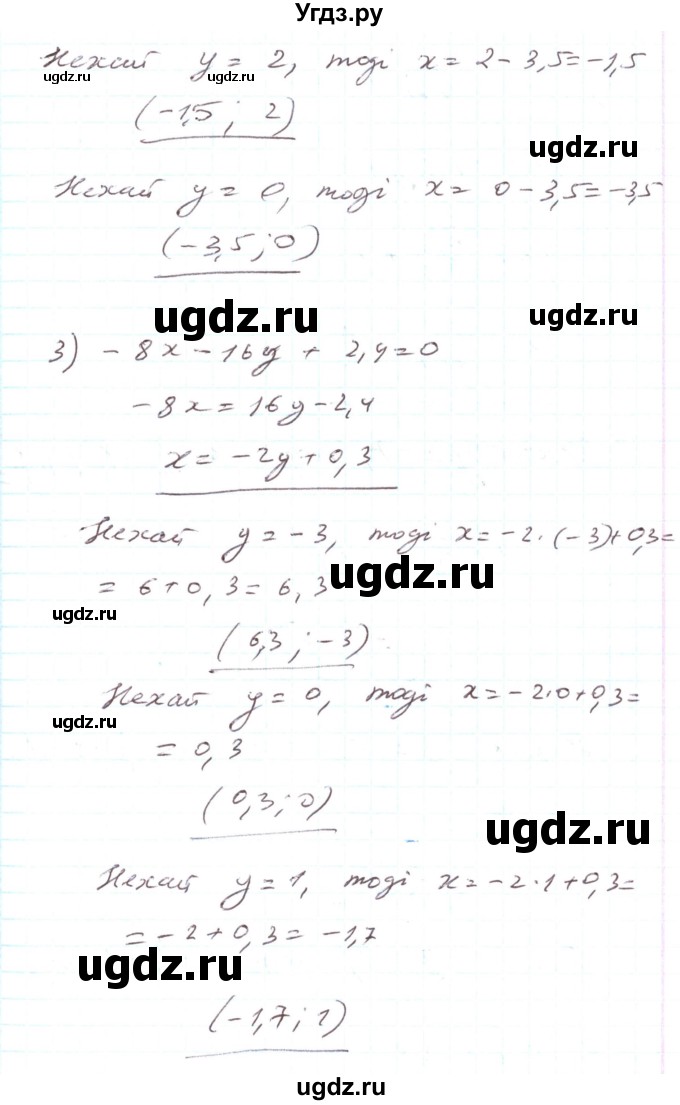 Угдз.ру
Нехай y = 2, тоді x = 2 - 3,5 = -1,5
ugdz.ru
ugdz.ru
(-1,5 ; 2)
ugdz.ru
Нехай y = 0, тоді x = 0 - 3,5 = -3,5
(-3,5 ; 0)
ugdz.ru
ugdz.ru
3) -8x - 16y + 2,4 = 0
-8x = 16y - 2,4
x = -2y + 0,3
Нехай y = -3, тоді x = -2 · (-3) + 0,3 =
ugdz.ru
= 6 + 0,3 = 6,3
ugdz.ru
(6,3 ; -3)
Нехай y = 0, тоді x = -2 · 0 + 0,3 =
ugdz.ru
= 0,3
(0,3 ; 0)
ugdz.ru
Нехай y = 1, тоді x = -2 · 1 + 0,3 =
= -2 + 0,3 = -1,7
ugdz.ru
(-1,7 ; 1)
ugdz.ru